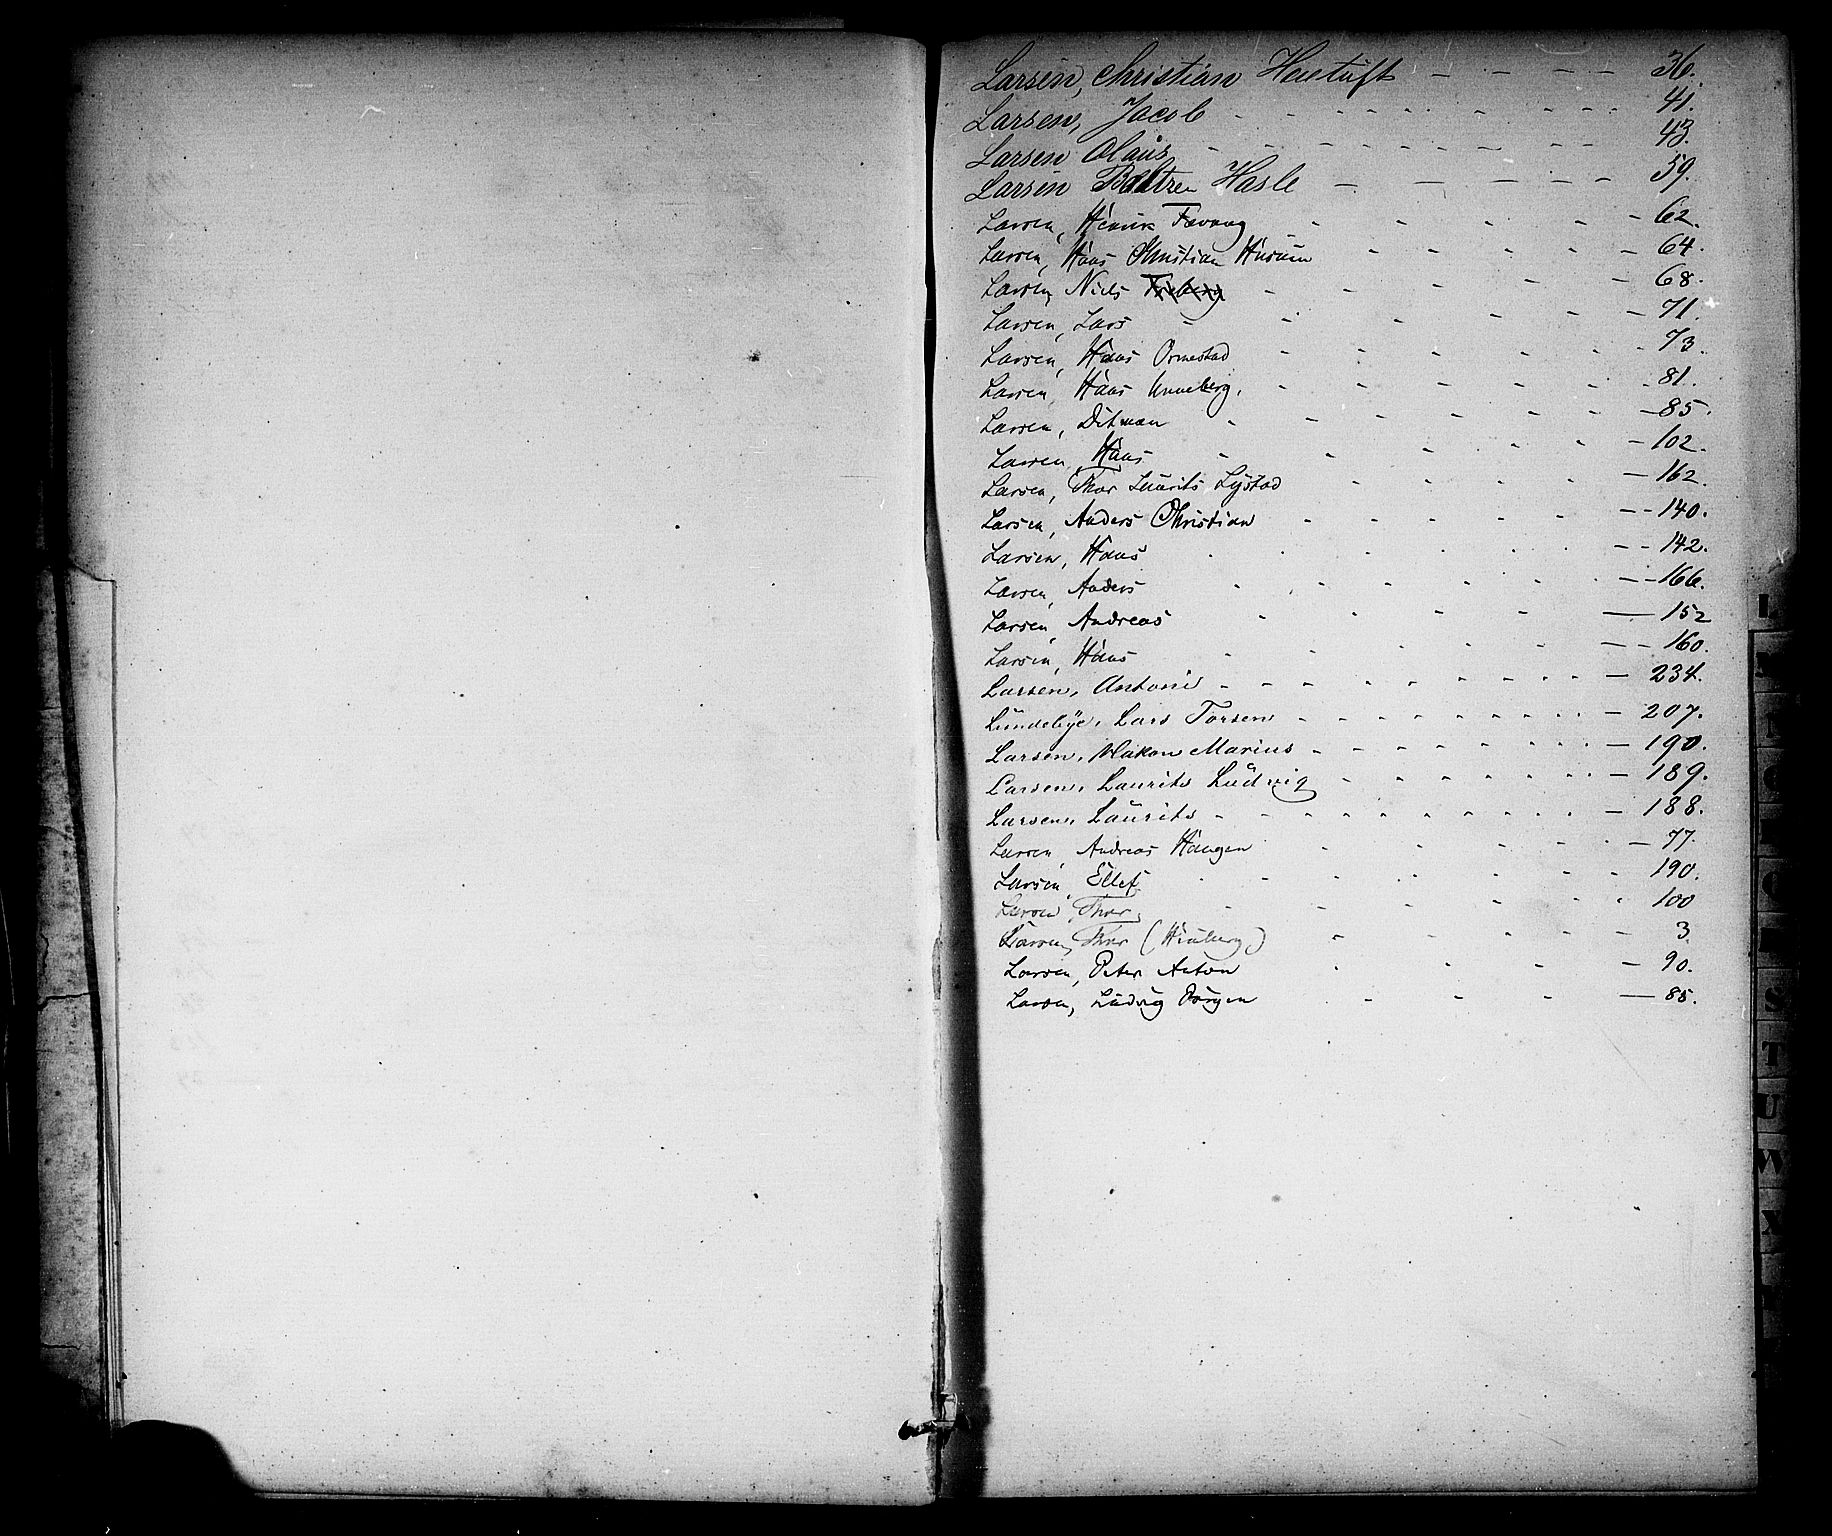 Larsen, Christian Hentuft - - - - 36.
Larsen, Jacob - - - - - - - - 41.
Larsen Olaüs - - - - - - - - 43.
Larsen Hasle - - - - - 59.
Larsen, Henrik - - - - - 62.
Larsen, Hans Christian - - - - 64.
Larsen, Niels - - - - - - 68.
Larsen, Lars - - - - - - 71.
Larsen, Hans Ormestad - - - - - 73.
Larsen, Hans Unneberg. - - - - - 81.
Larsen, Ditman - - - - - - 85.
Larsen, Hans - - - - - 102.
Larsen, Thor Laürits Lÿstad - - - - 162.
Larsen, Anders Christian - - - - - - 140.
Larsen, Hans - - - - - - 142.
Larsen, Anders - - - - - - 166.
Larsen, Andreas - - - - - 152
Larsen, Hans - - - - - - 160.
Larsen, Antoni - - - - - - - - - 234.
Lündebÿe, Lars Torsen - - - - - - - 207.
Larsen, Hakon Marius - - - - - - - 190.
Larsen, Laurits Lüdvig - - - - - - 189.
Larsen, Laürits - - - - - - - - - 188.
Larsen, Andreas Haugen - - - - - 77.
Larsen, Ellef. - - - - - - 190.
Larsen, Thor, - - - - - 100
Larsen, Thor ( ) - - - - 3.
Larsen, Peter Anton - - - - 90.
Larsen, Lüdvig Jörgen - - - - 85.
L
M
N
O
S
T
U
W
X